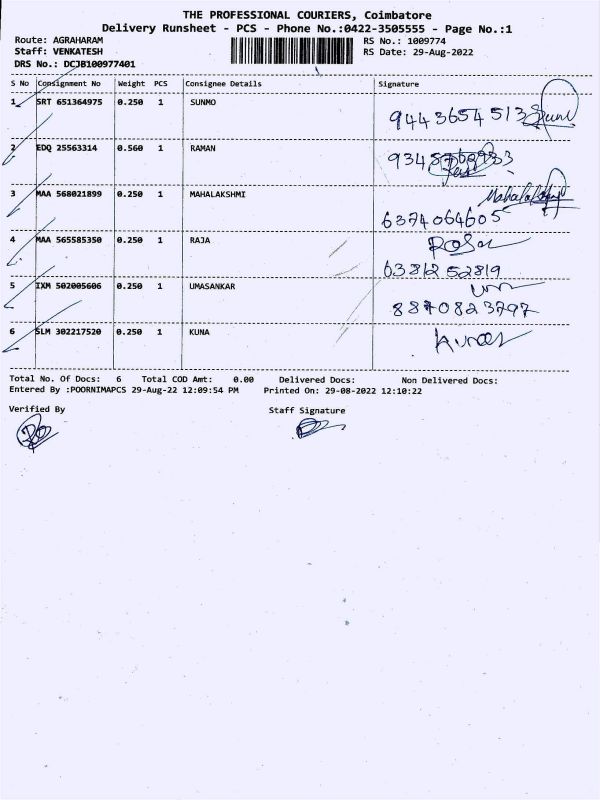 THE PROFESSIONAL COURIERS, Coimbatore
Delivery Runsheet - PCS - Phone No.:0422-3505555 - Page No.:1
Route: AGRAHARAM RS No.: 1009774
Staff: VENKATESH RS Date: 29-Aug-2022
DRS No.: DCJB100977401
S No Consignment No Weight PCS Consignee Details Signature
1 SRT 651364975 0.250 1 SUNMO
9443654513
2 EDQ 25563314 0.560 1 RAMAN
3 MAA 568021899 0.250 1 MAHALAKSHMI Mahalakshmi
6374064605
4 MAA 565585350 0.250 1 RAJA
6381252819
5 IXM 502005606 0.250 1 UMASANKAR
8870823797
6 SLM 302217520 0.250 1 KUNA
Total No. Of Docs: 6 Total COD Amt: 0.00 Delivered Docs: Non Delivered Docs:
Entered By :POORNIMAPCS 29-Aug-22 12:09:54 PM Printed On: 29-08-2022 12:10:22
Verified By Staff Signature